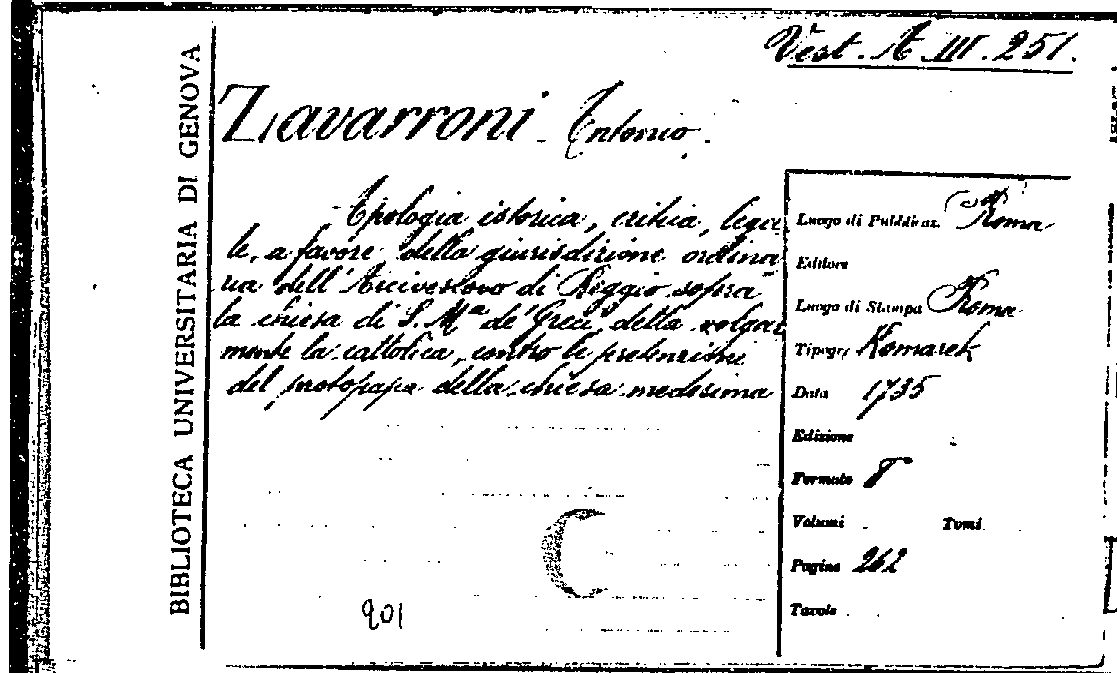 Vest. A. III. 251.
BIBLIOTECA UNIVERSITARIA DI GENOVA
Zavarroni - Antonio.
Apologia istorica, critica, lega
le, a favore della giurisdizione ordina
ria dell'Arcivescovo di Reggio sopra
la chiesa di S. Mª de' Greci, della volgar
mente la cattolica, contro le pretenzioni
del protopapa della chiesa medesima
Luogo di Pubblicaz. Roma
Editore
Luogo di Stampa Roma
Tipogr. Komarek
Data 1735
Edizione
Formato 8
Volumi Tomi
Pagine 262
Tavole
901